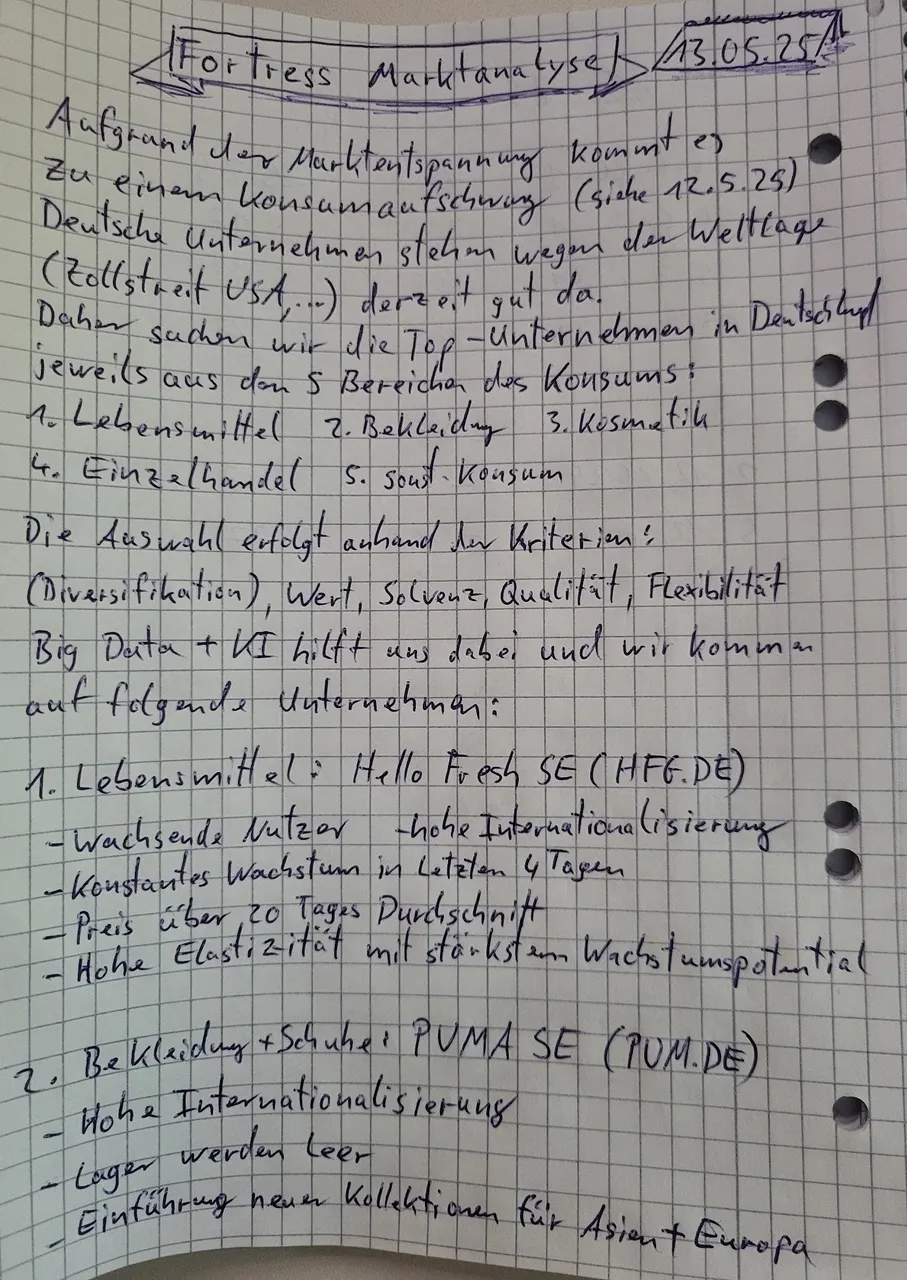 Fortress Marktanalyse 13.05.25
Aufgrund der Marktentspannung kommt es
zu einem Konsumaufschwung (siehe 12.5.25)
Deutsche Unternehmen stehen wegen der Weltlage
(Zollstreit USA,...) derzeit gut da.
Daher suchen wir die Top-Unternehmen in Deutschland
jeweils aus den 5 Bereichen des Konsums:
1. Lebensmittel 2. Bekleidung 3. Kosmetik
4. Einzelhandel 5. sonst. Konsum
Die Auswahl erfolgt anhand der Kriterien:
(Diversifikation), Wert, Solvenz, Qualität, Flexibilität
Big Data + KI hilft uns dabei und wir kommen
auf folgende Unternehmen:
1. Lebensmittel: Hello Fresh SE (HFG.DE)
- Wachsende Nutzer - hohe Internationalisierung
- Konstantes Wachstum in letzten 4 Tagen
- Preis über 20 Tages Durchschnitt
- Hohe Elastizität mit stärkstem Wachstumspotential
2. Bekleidung + Schuhe: PUMA SE (PUM.DE)
- Hohe Internationalisierung
- Lager werden leer
- Einführung neuer Kollektionen für Asien + Europa